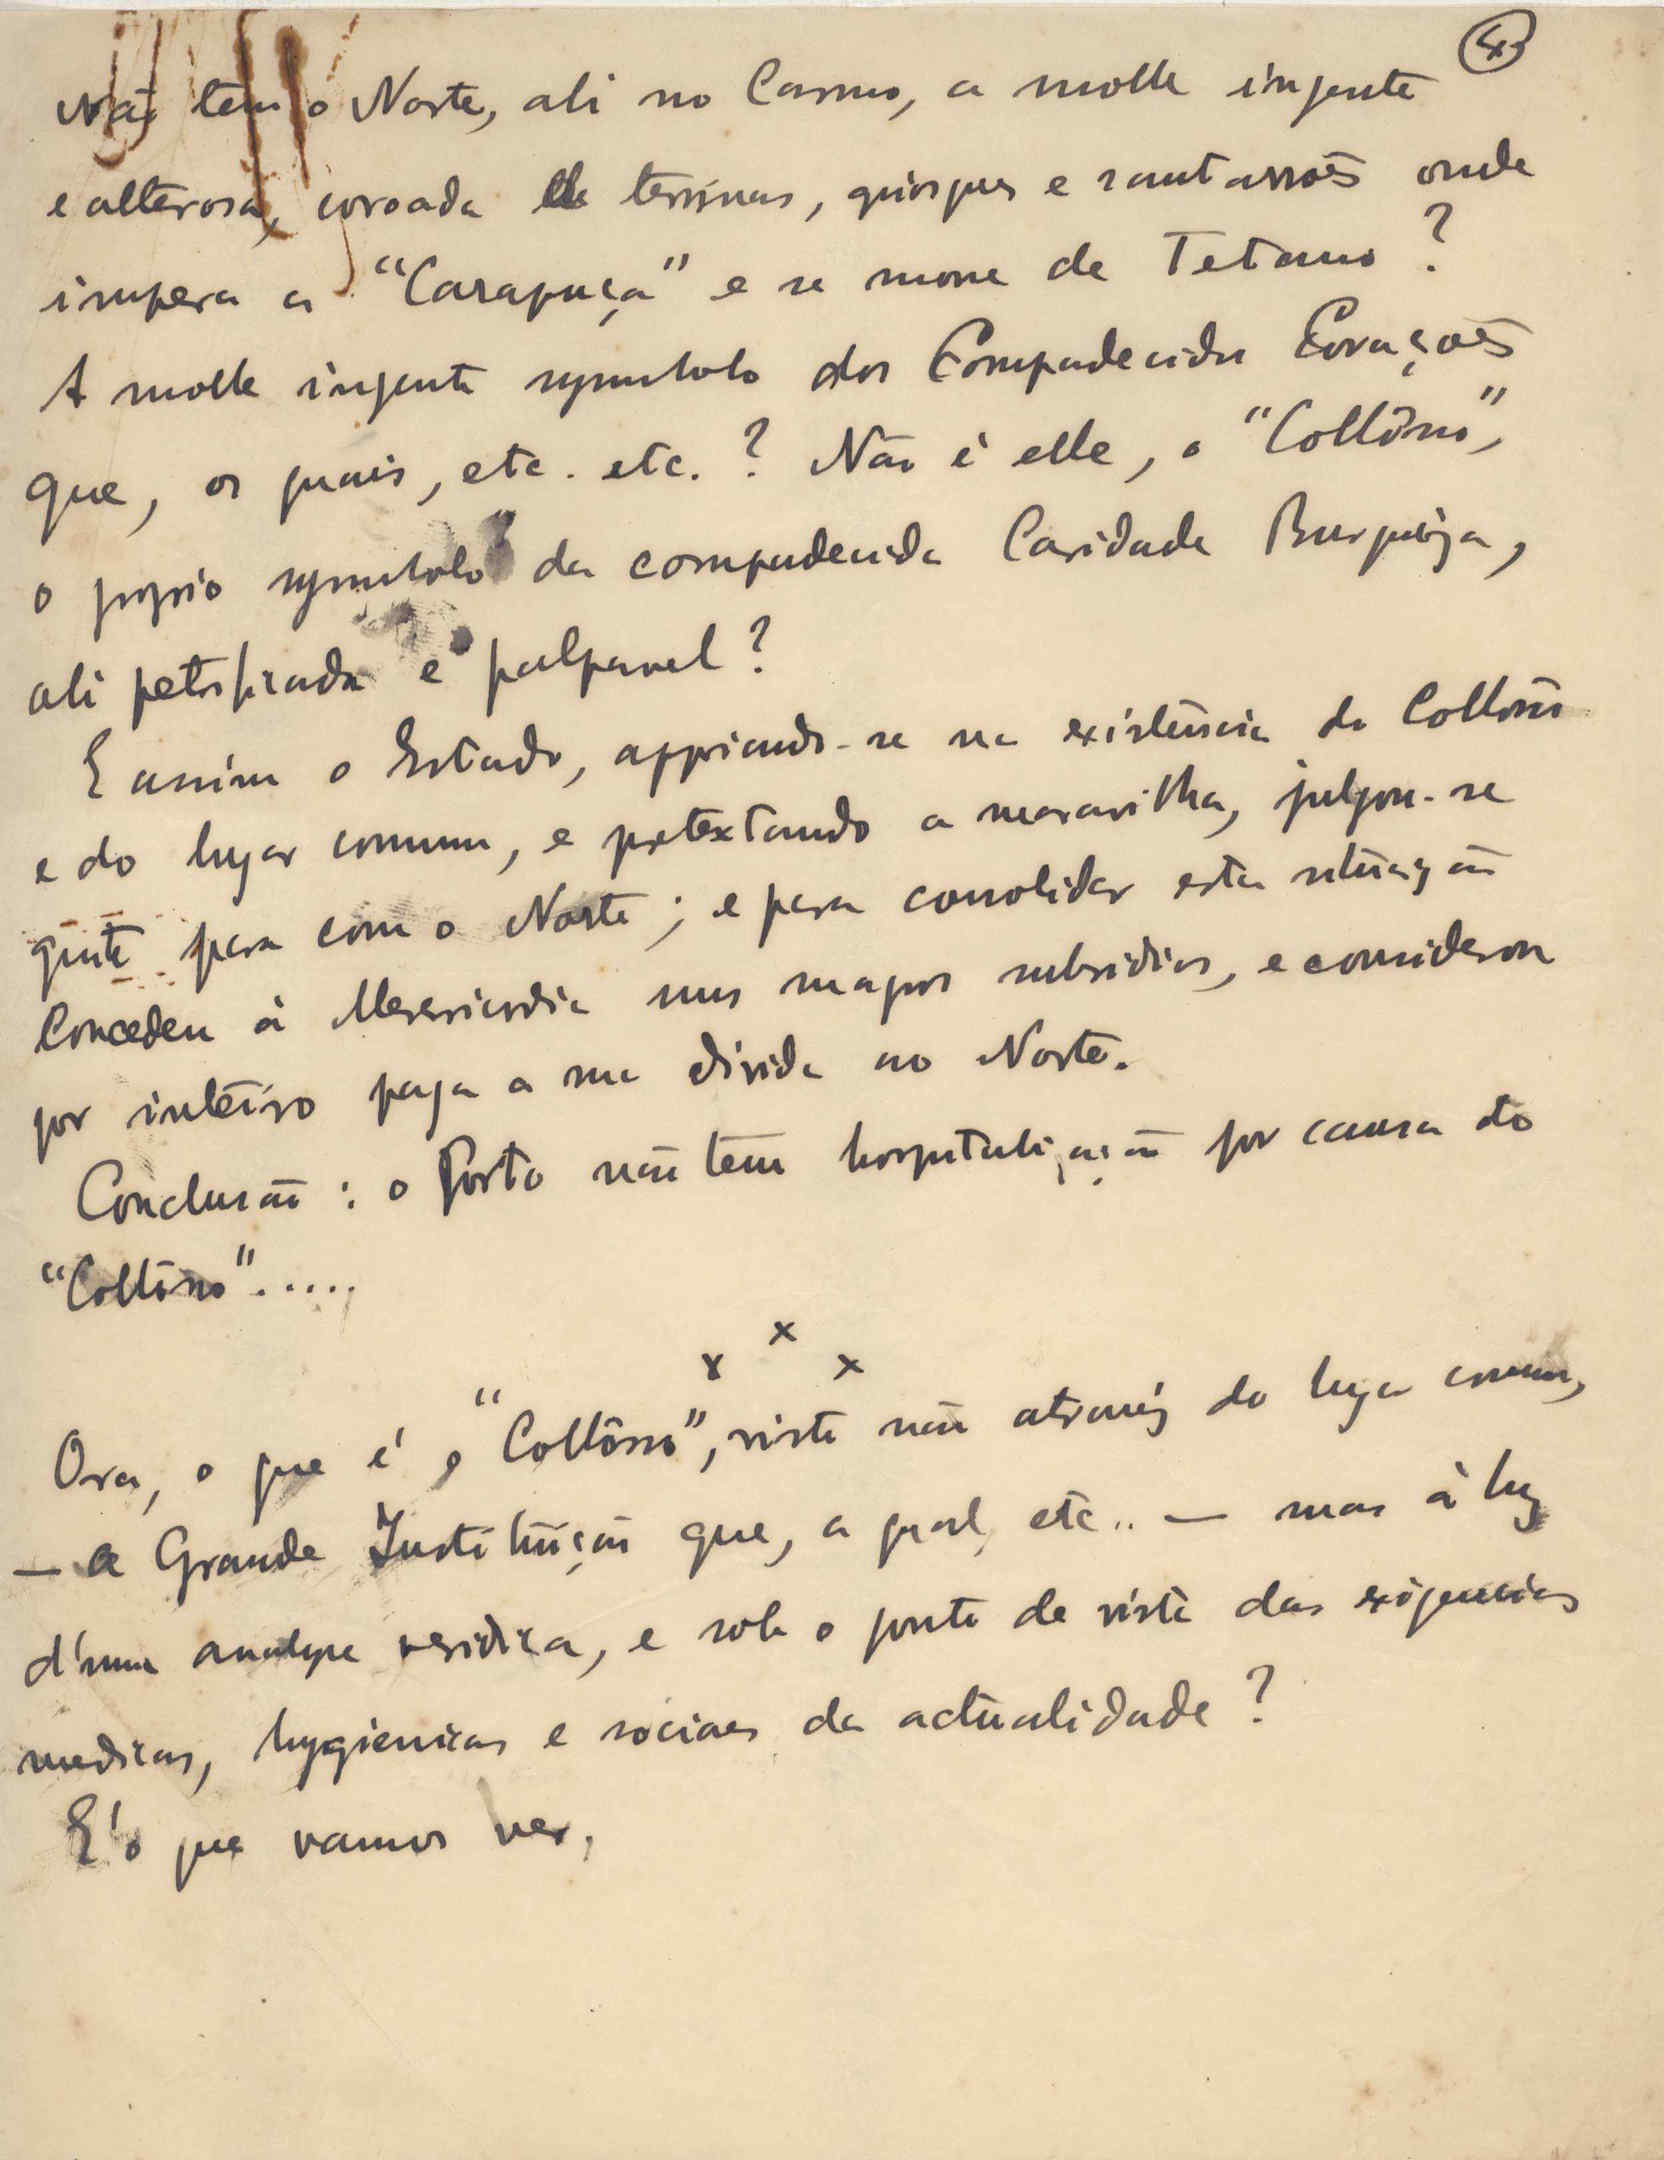 4
Não tem o Norte, ali no Carmo, a molle ingente
e alterosa, coroada de terrinas, quiosques e santarrões onde
impera a "Carapuça" e se morre de Tetano?
A molle ingente symbolo dos Compadecidos Corações
que, os quais, etc. etc.? Não é elle, o "Collôsso",
o proprio symbolo da compadecida Caridade Burgueza,
ali petrificada e palpavel?
E assim o Estado, appoiando-se na existencia do Collosso
e do lugar commum, e pretextando a maravilha, julgou-se
quite para com o Norte; e para consolidar esta situação
Concedeu á Misericordia uns magros subsidios, e considerou
por inteiro paga a sua divida ao Norte.
Conclusão: o Porto não tem hospitalização por causa do
"Collôsso".....
x x x
Ora, o que é o "Collôsso", visto não atravéz do lugar commum,
— a Grande Instituição que, a qual, etc.. — mas à luz
d'uma analyse veridica, e sob o ponto de vista das exigencias
medicas, hygienicas e sociaes da actualidade?
E' o que vamos ver.